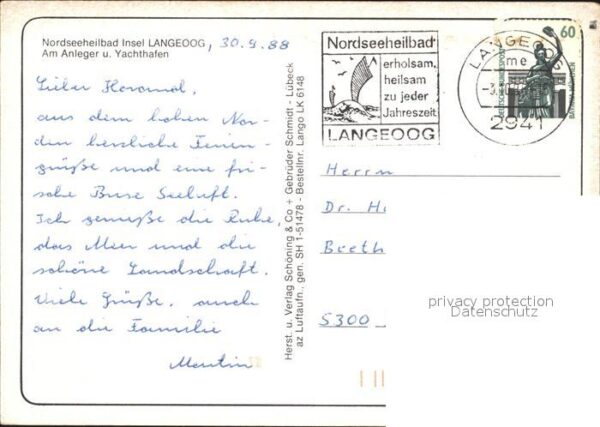 Nordseeheilbad Insel LANGEOOG, 30.9.88
Am Anleger u. Yachthafen
Lieber
aus dem hohen Nor-
den herzliche Ferien-
grüße und eine fri-
sche Brise Seeluft.
Ich genieße die Ruhe,
das Meer und die
schöne Landschaft.
Viele Grüße, auch
an die Familie
Martin
Herst. u. Verlag Schöning & Co + Gebrüder Schmidt - Lübeck
az Luftaufn., gen. SH 1-51478 - Bestellnr. Lango LK 6148
Nordseeheilbad
erholsam,
heilsam
zu jeder
Jahreszeit
LANGEOOG
LANGEOOG
me
2941
60
DEUTSCHE BUNDESPOST
Herrn
Dr. H
Beeth
5300
privacy protection
Datenschutz